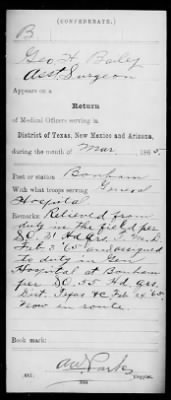 (CONFEDERATE.)
B
Geo. H. Baily
Asst. Surgeon
Appears on a
Return
of Medical Officers serving in
District of Texas, New Mexico and Arizona,
during the month of Mar, 1865.
Post or station Bonham
With what troops serving General
Hospital
Remarks: Relieved from
duty in the field per
S.O. 31 Hd Qrs. T. M. D.
Feb 3 '65 and assigned
to duty in Gen
Hospital at Bonham
per S.O. 55 Hd. Qrs.
Dist. Texas &c. Feb. 24 '65.
Now en route.
Book mark:
Copyist.